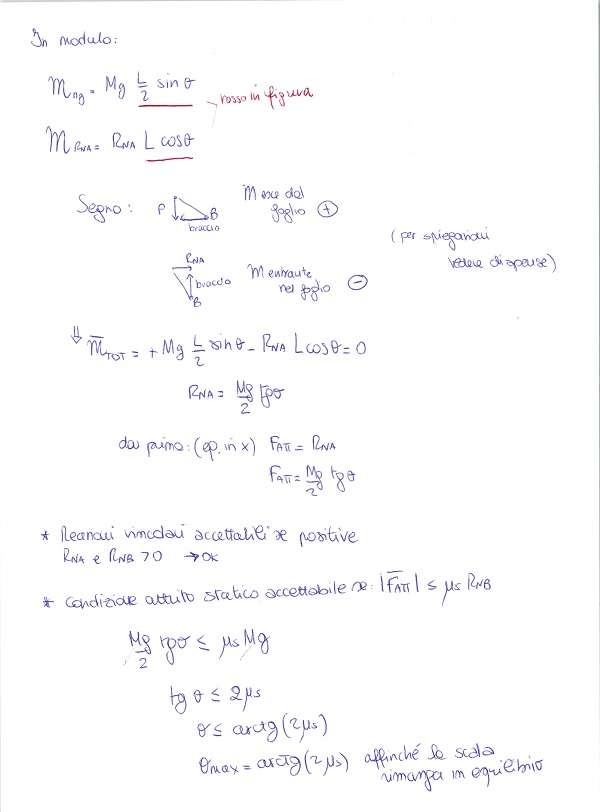 In modulo:
Mmg = Mg L/2 sin θ
rosso in figura
M RNA = RNA L cosθ
Segno: P B braccio M esce dal
foglio (+)
(per spiegazioni
vedere dispense)
RNA braccio B M entrante
nel foglio (-)
⇓ M̄TOT = + Mg L/2 sin θ - RNA L cos θ = 0
RNA = Mg/2 tgθ
da prima: (eq. in x) FATT = RNA
FATT = Mg/2 tg θ
* Reazioni vincolari accettabili se positive
RNA e RNB > 0 → OK
* Condizione attrito statico accettabile se: |F̄ATT| ≤ μs RNB
Mg/2 tgθ ≤ μs Mg
tg θ ≤ 2μs
θ ≤ arctg (2μs)
θmax = arctg (2μs) affinché la scala
rimanga in equilibrio